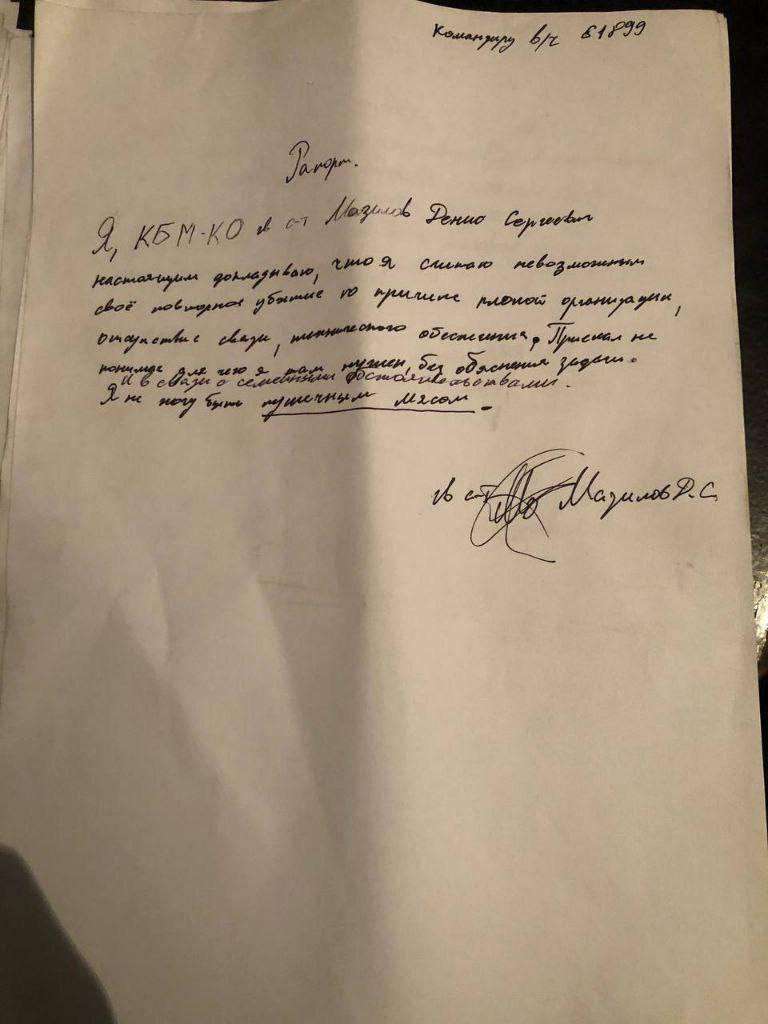 Командиру в/ч 61899
Рапорт.
Я, КБМ-КО гв с-т Мазилов Денис Сергеевич
настоящим докладываю, что я считаю невозможным
своё повторное убытие по причине плохой организации,
отсутствие связи, технического обеспечения. Приехал не
понимая для чего я там нужен, без объяснения задачи.
и в связи с семейными обстоятельствами.
Я не могу быть пушечным мясом.
гв с-т Мазилов Д.С.